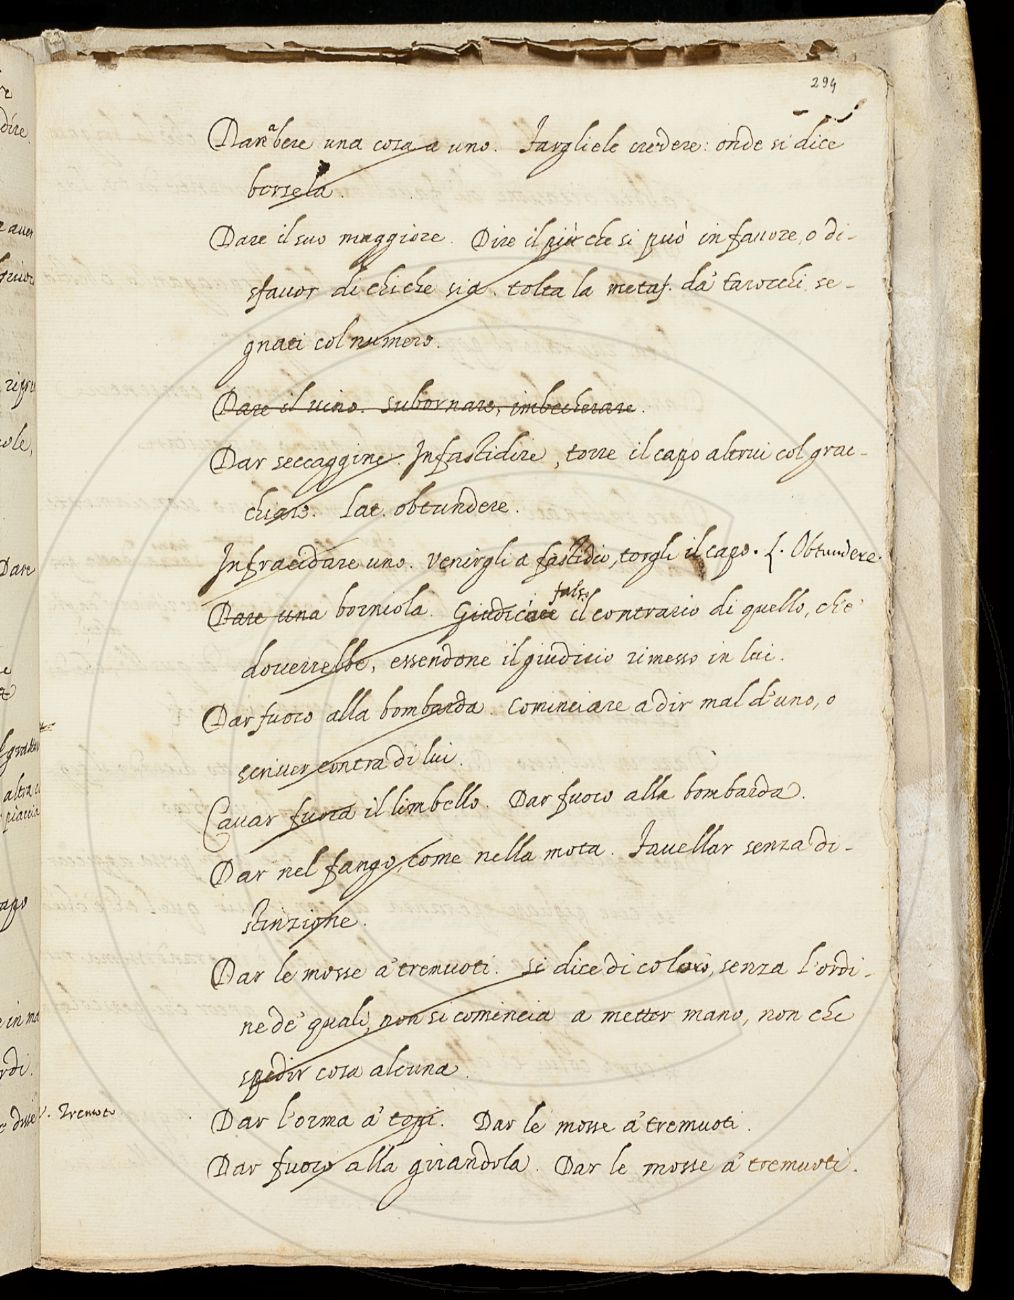 294
Dar a bere una cosa a uno. Fargliele credere: onde si dice
bersela.
Dare il suo maggiore. Dire il più che si può in fauore, o di-
sfauor di chi che sia. tolta la metaf. da' tarocchi se-
gnati col numero.
Dare il vino. subornare, imbecherare.
Dar seccaggine. Infastidire, torre il capo altrui col grac-
chiare. Lat. obtundere.
Infracidare uno. Venirgli a fastidio, torgli il capo. L. Obtundere.
fals.
Dare una borniola. Giudicare il contrario di quello, che
douerrebbe, essendone il giudicio rimesso in lui.
Dar fuoco alla bombarda. Cominciare a dir mal d'uno, o
scriuer contra di lui.
Cauar fuora il limbello. Dar fuoco alla bombarda.
Dar nel fango, come nella mota. Fauellar senza di-
stinzione.
Dar le mosse a' tremuoti. Si dice di coloro, senza l'ordi-
ne de' quali, non si comincia a metter mano, non che
spedir cosa alcuna.
v. Tremoto
Dar l'orma a' topi. Dar le mosse a' tremuoti.
Dar fuoco alla girandola. Dar le mosse a' tremuoti.